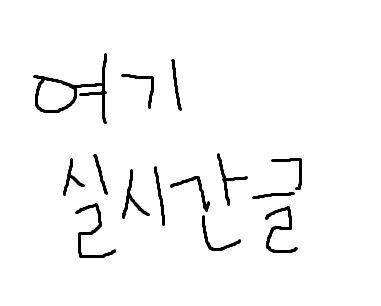 여기
실시간글